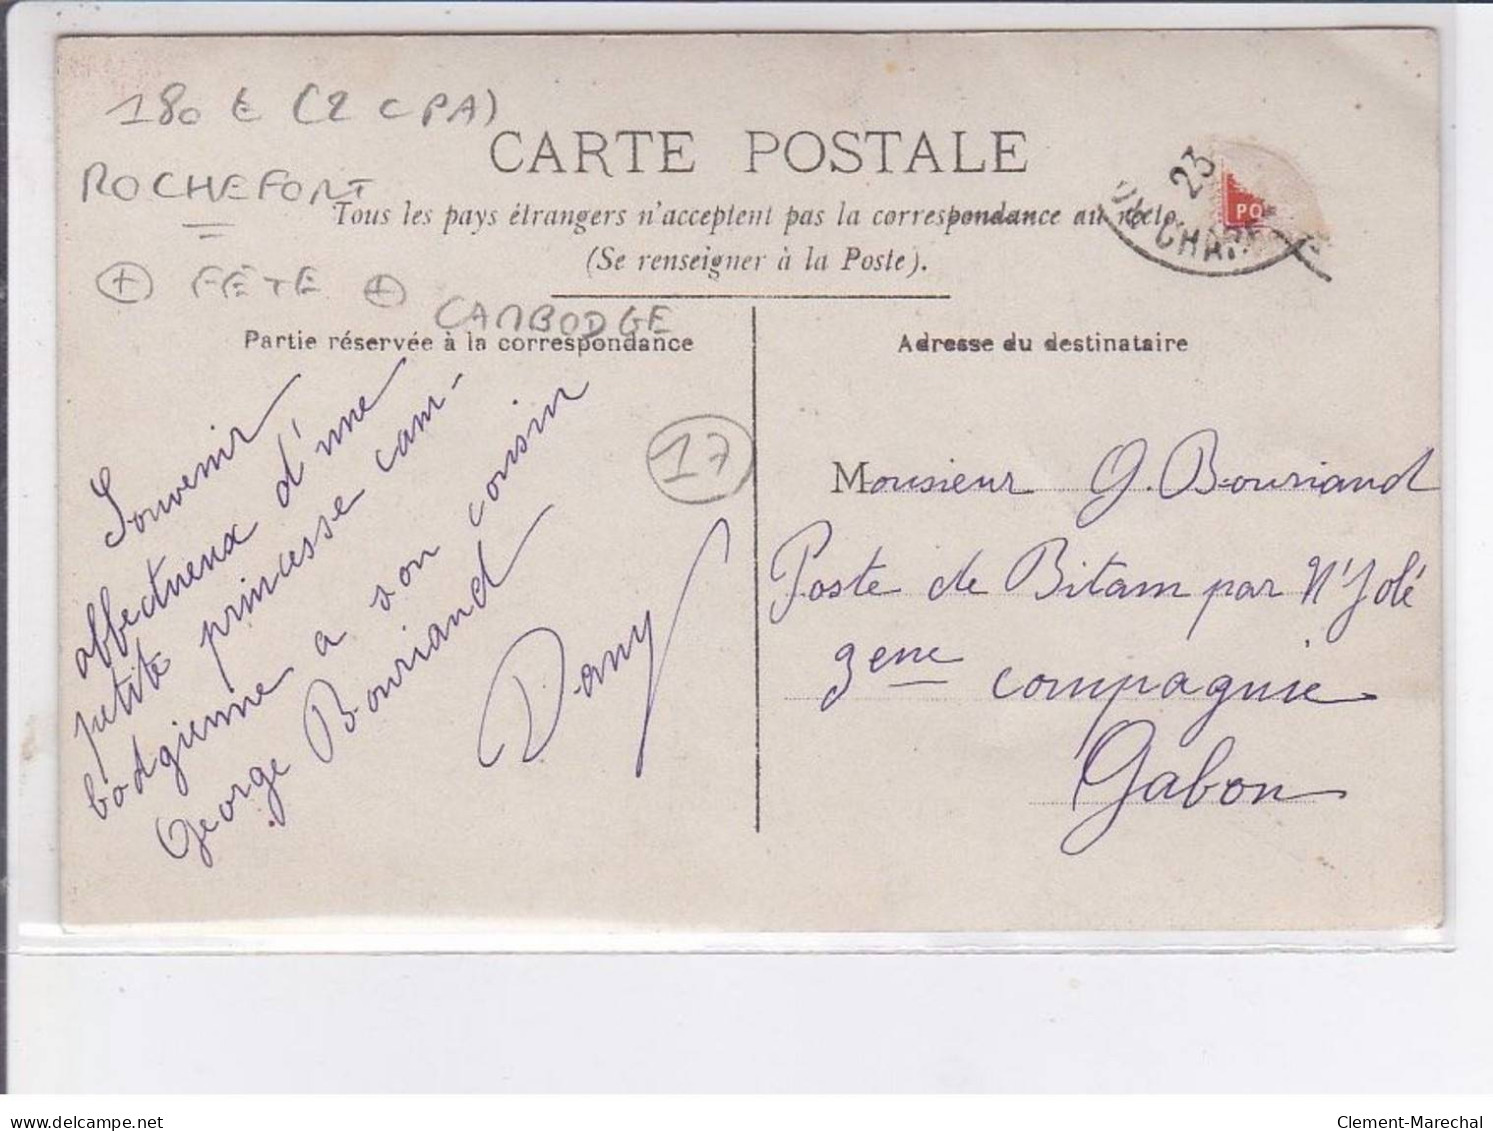 180 € (2 CPA)
CARTE POSTALE
ROCHEFORT
Tous les pays étrangers n'acceptent pas la correspondance au recto.
(Se renseigner à la Poste).
+ FÊTE + CAMBODGE
23
CHAR
PO
Partie réservée à la correspondance
Adresse du destinataire
17
Souvenir
affectueux d'une
petite princesse cam-
bodgienne a son cousin
George Bouriand
Dany
Monsieur G. Bouriand
Poste de Bitam par N'Jolé
3eme compagnie
Gabon
delcampe.net
Clement-Marechal